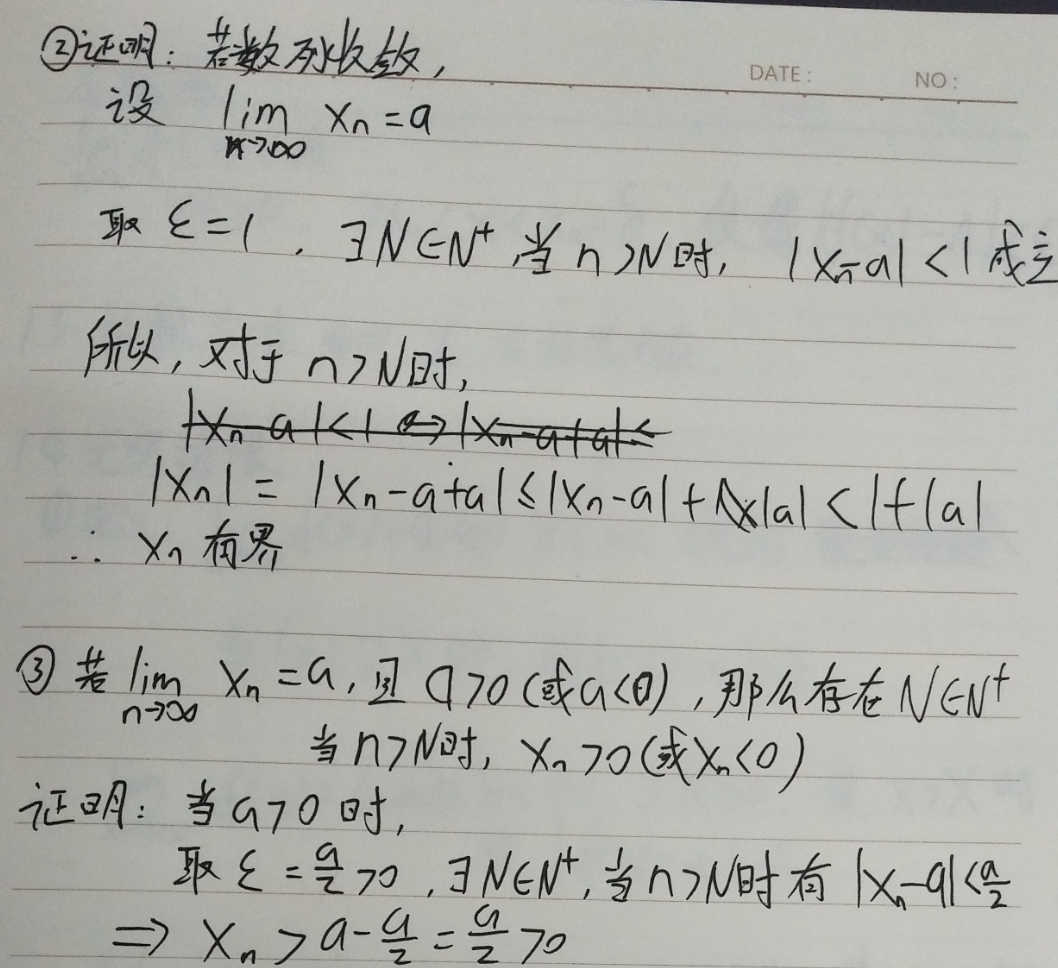 ②证明：若数列收敛，
DATE: NO:
设 lim xₙ=a
n→∞
取 ε=1，∃N∈N⁺ 当n>N时，|xₙ-a|<1成立
所以，对于n>N时，
|xₙ-a|<1⇔|xₙ-a+a|≤
|xₙ|=|xₙ-a+a|≤|xₙ-a|+|a|<1+|a|
∴ xₙ有界
③若 lim xₙ=a，且a>0（或a<0），那么存在N∈N⁺
n→∞
当n>N时，xₙ>0（或xₙ<0）
证明：当a>0时，
取 ε=a/2>0，∃N∈N⁺，当n>N时有|xₙ-a|<a/2
⇒ xₙ>a-a/2=a/2>0